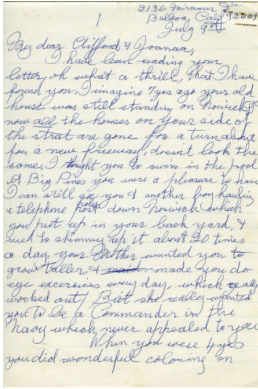 2136 Miramar
Balboa, Calif 92661
July 9th
1
My dear Clifford & Joanna,
I have been reading your
letter, oh what a thrill, that I have
found you. I imagine 7 yrs ago your old
house was still standing on Norwich
now all the houses on your side of
the street are gone for a turnabout
for a new freeway, doesn't look the
same. I taught you to swim in the pool
at Big Pines you were a pleasure to have
I can still see you & another boy hauling
a telephone post down Norwich which
you put up in your back yard, &
use to shimmy up it about 20 times
a day your Mother wanted you to
grow taller & made you do
eye excersises every day, which really
worked out, But she really wanted
you to be a Commander in the
Navy which never appealed to you
When you were 4 yrs
you did wonderful coloring on